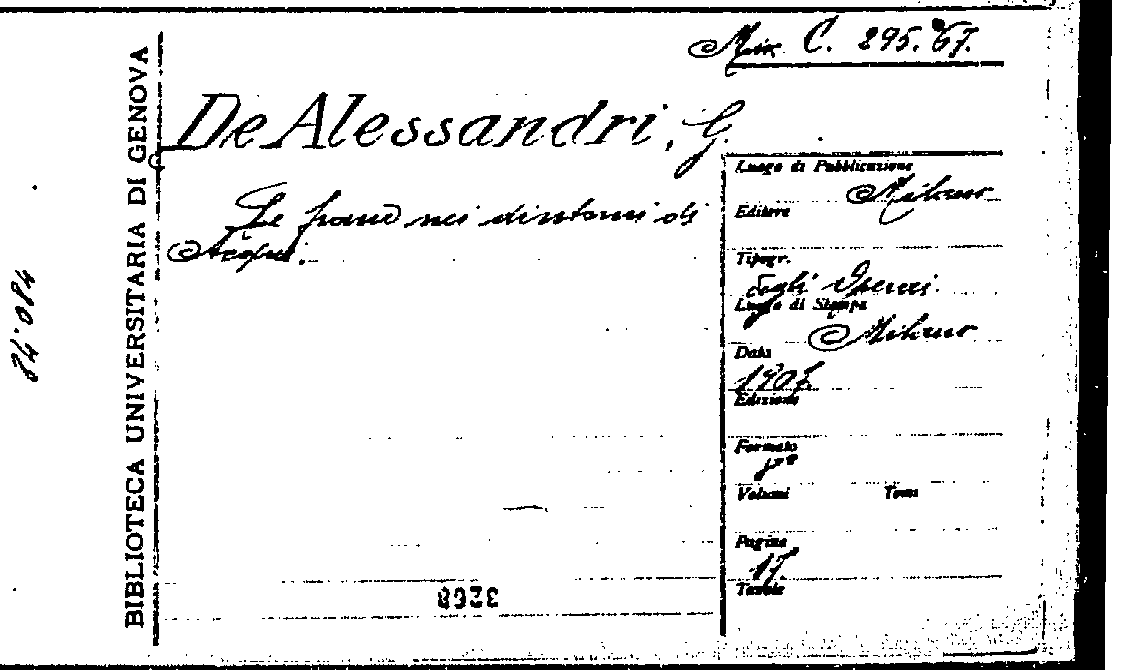 Mix C. 295.67.
BIBLIOTECA UNIVERSITARIA DI GENOVA
De Alessandri, G.
Le frane nei dintorni di
Acqui.
Luogo di Pubblicazione
Milano
Editore
Tipogr.
degli Operai.
Luogo di Stampa
Milano
Data
1907.
Edizione
Formato
8°
Volumi Tomi
Pagine
17.
Tavole
3268